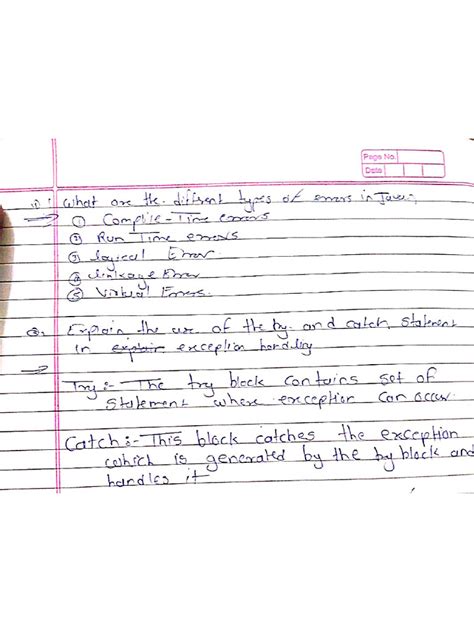 Page No.
Date
1) What are the diffrent types of errors in Java:-
① Compile-Time errors
② Run Time errors
③ logical Error
④ linkage Error
⑤ Virtual Errors.
Q. Explain the use of the try. and catch statement
in explain exception handling
Try:- The try block contains set of
statement where exception can occur.
Catch:- This block catches the exception
which is generated by the try block and
handles it